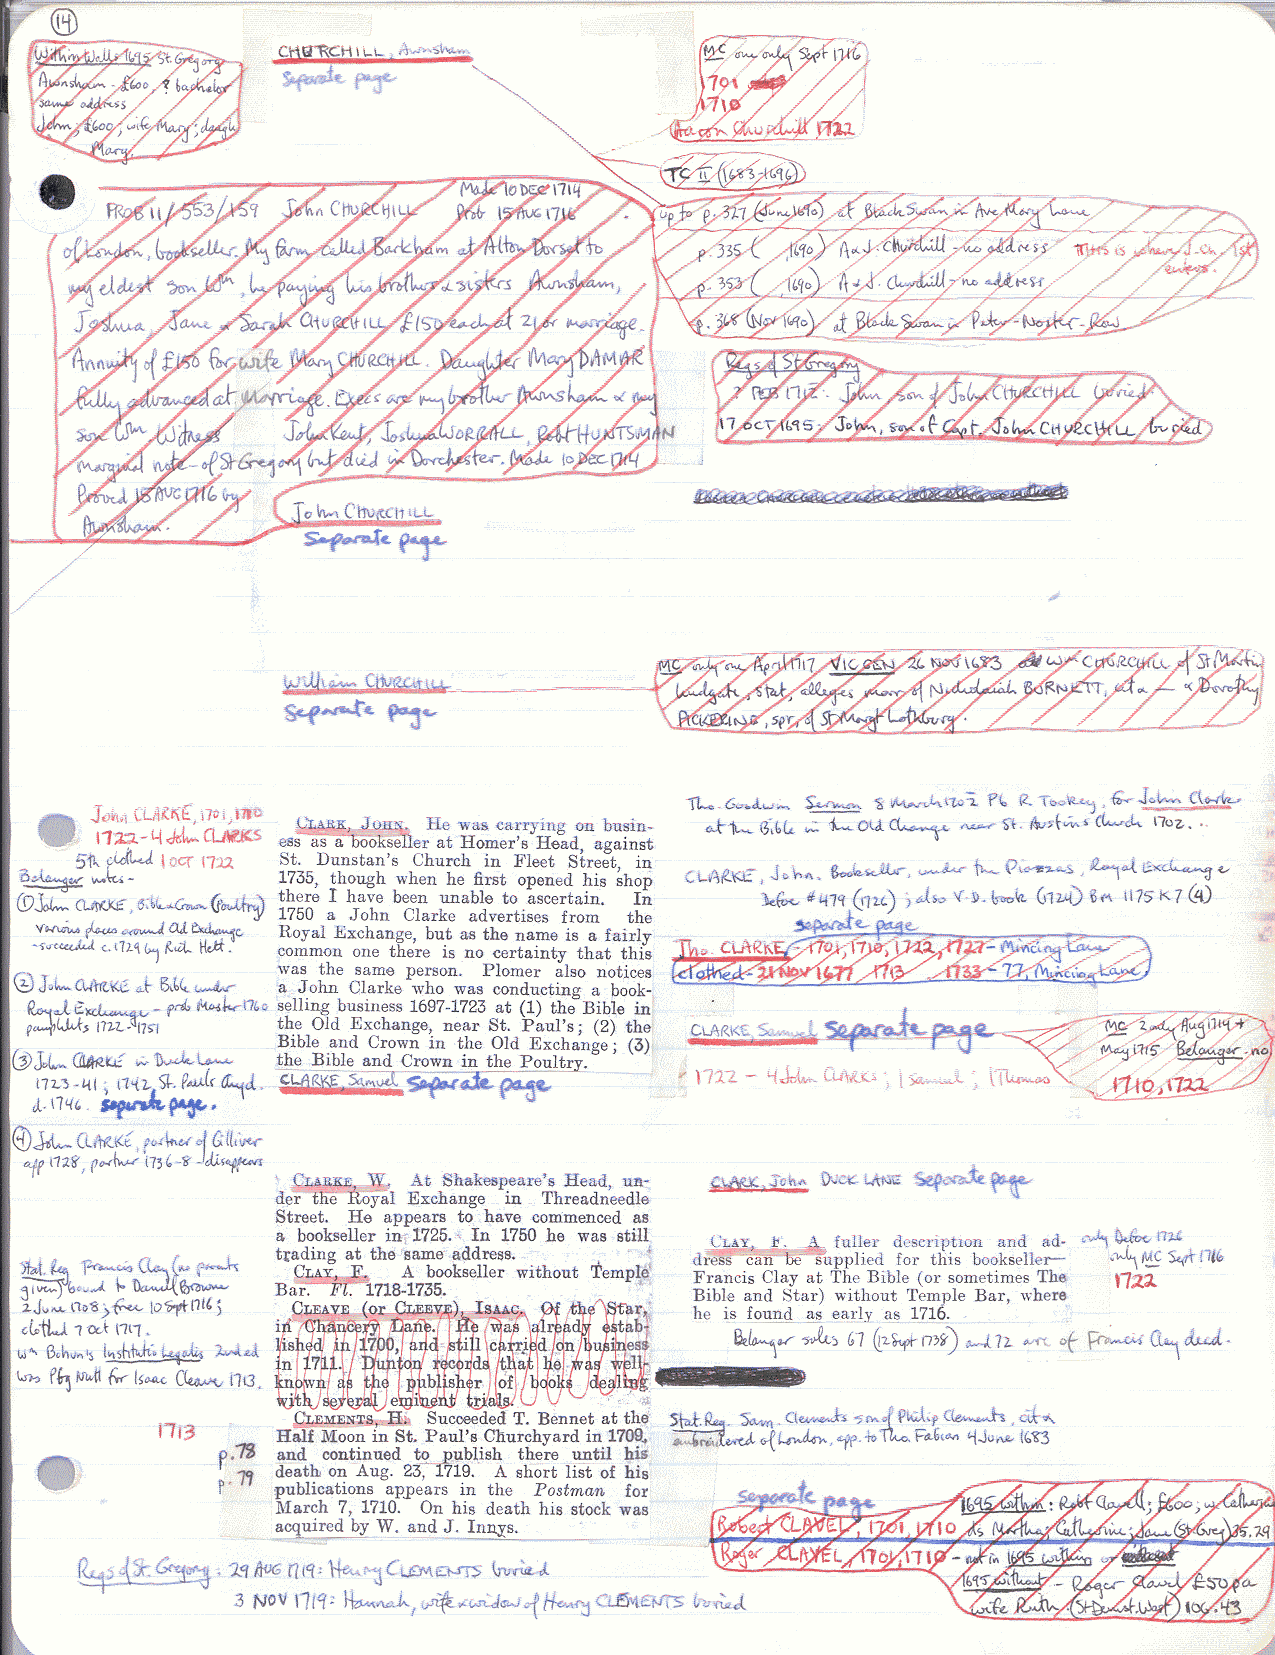 14
Within Walls 1695 St. Gregory
Awnsham - £600, ? bachelor
same address
John, £600; wife Mary; daugh
Mary.
CHURCHILL, Awnsham
Separate page
MC one only Sept 1716
1701
1710
Aacon Churchill 1722
TC II (1683-1696)
up to p. 327 (June 1690) at Black Swan in Ave Mary Lane
p. 335 ( 1690) A & J. Churchill - no address THIS is where J. Ch. 1st
enters.
p. 353 ( 1690) A & J. Churchill - no address
p. 368 (Nov 1690) at Black Swan in Peter-Noster-Row
Made 10 DEC 1714
PROB 11/553/159 John CHURCHILL Prob 15 AUG 1716
of London, bookseller. My farm called Barkham at Alton Dorset to
my eldest son Wm, he paying his brothers & sisters Awnsham,
Joshua, Jane & Sarah CHURCHILL £150 each at 21 or marriage.
Annuity of £150 for wife Mary CHURCHILL. Daughter Mary DAMAR
fully advanced at Marriage. Execs are my brother Awnsham & my
son Wm. Witness John Kent, Joshua WORRALL, Robt HUNTSMAN
marginal note - of St Gregory but died in Dorchester. Made 10 DEC 1714
Proved 15 AUG 1716 by
Awnsham.
Regs of St Gregory
? FEB 1712: John, son of John CHURCHILL buried
17 OCT 1695: John, son of Capt. John CHURCHILL buried
John CHURCHILL
Separate page
William CHURCHILL
Separate page
MC only one April 1717 VIC GEN 26 NOV 1683 Wm CHURCHILL of St Martin
Ludgate, Stat, alleges marr of BURNETT, cit & — & Dorothy
PICKERING, spr, of St Margt Lothbury.
John CLARKE, 1701, 1710
1722 - 4 John CLARKS
5th clothed 1 OCT 1722
Belanger notes -
① John CLARKE, Bible & Crown (Poultry)
various places around Old Exchange
- succeeded c. 1729 by Rich Hett.
② John CLARKE at Bible under
Royal Exchange - prob Master 1760
pamphlets 1722-1751
③ John CLARKE in Duck Lane
1723-41; 1742, St. Pauls Chyd.
d. 1746. separate page.
④ John CLARKE, partner of Gilliver
app 1728, partner 1736-8 - disappears
CLARK, JOHN. He was carrying on busin-
ess as a bookseller at Homer's Head, against
St. Dunstan's Church in Fleet Street, in
1735, though when he first opened his shop
there I have been unable to ascertain. In
1750 a John Clarke advertises from the
Royal Exchange, but as the name is a fairly
common one there is no certainty that this
was the same person. Plomer also notices
a John Clarke who was conducting a book-
selling business 1697-1723 at (1) the Bible in
the Old Exchange, near St. Paul's; (2) the
Bible and Crown in the Old Exchange; (3)
the Bible and Crown in the Poultry.
CLARKE, Samuel Separate page
Tho. Goodwin Sermon 8 March 1702 Pb R. Tookey, for John Clarke
at the Bible in the Old Change near St. Austins Church 1702...
CLARKE, John. Bookseller, under the Piazzas, Royal Exchange
Defoe #479 (1726); also V.D. book (1724) BM 1175 K7 (4)
separate page
Tho. CLARKE - 1701, 1710, 1722, 1727 - Mincing Lane
clothed - 21 NOV 1677 1713 1733 - 77, Mincing Lane
CLARKE, Samuel Separate page
1722 - 4 John CLARKS; 1 Samuel; 1 Thomas
MC 2 only Aug 1714 +
May 1715 Belanger - no
1710, 1722
CLARKE, W. At Shakespeare's Head, un-
der the Royal Exchange in Threadneedle
Street. He appears to have commenced as
a bookseller in 1725. In 1750 he was still
trading at the same address.
CLAY, F. A bookseller without Temple
Bar. Fl. 1718-1735.
CLEAVE (or CLEEVE), ISAAC. Of the Star,
in Chancery Lane. He was already estab-
lished in 1700, and still carried on business
in 1711. Dunton records that he was well-
known as the publisher of books dealing
with several eminent trials.
CLEMENTS, H. Succeeded T. Bennet at the
Half Moon in St. Paul's Churchyard in 1709,
and continued to publish there until his
death on Aug. 23, 1719. A short list of his
publications appears in the Postman for
March 7, 1710. On his death his stock was
acquired by W. and J. Innys.
CLARK, John DUCK LANE Separate page
CLAY, F. A fuller description and ad-
dress can be supplied for this bookseller—
Francis Clay at The Bible (or sometimes The
Bible and Star) without Temple Bar, where
he is found as early as 1716.
only Defoe 1726
only MC Sept 1716
1722
Belanger sales 67 (12 Sept 1738) and 72 are of Francis Clay decd.
Stat. Reg Francis Clay (no parents
given) bound to Daniel Browne
2 June 1708; free 10 Sept 1716;
clothed 7 Oct 1717.
Wm Bohun's Institutio Legalis 2nd ed
was Pbg Nutt for Isaac Cleave 1713.
1713
p. 78
p. 79
Stat. Reg. Sam. Clements son of Philip Clements, cit &
embroiderer of London, app. to Tho. Fabian 4 June 1683
separate page
Robert CLAVEL, 1701, 1710
Roger CLAVEL, 1701, 1710 - not in 1695 within or
1695 within: Robt Clavell; £600; w Catherine
ds Martha; Catherine; Jane (St Greg) 35.29
1695 without - Roger Clavel £50 pa
wife Ruth. (St Dunst. West) 106.43
Regs of St. Gregory: 29 AUG 1719: Henry CLEMENTS buried
3 NOV 1719: Hannah, wife & widow of Henry CLEMENTS buried